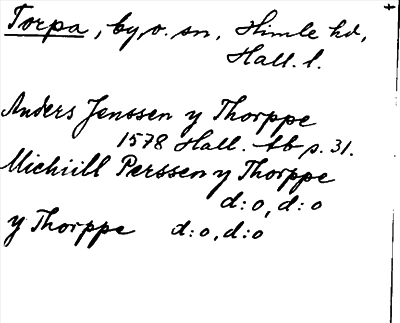 Torpa, by, o. sn, Himle hd,
Hall. l.
Anders Jenssen y Thorppe
1578 Hall. tb p. 31.
Michiill Perssen y Thorppe
d:o, d:o
y Thorppe d:o, d:o